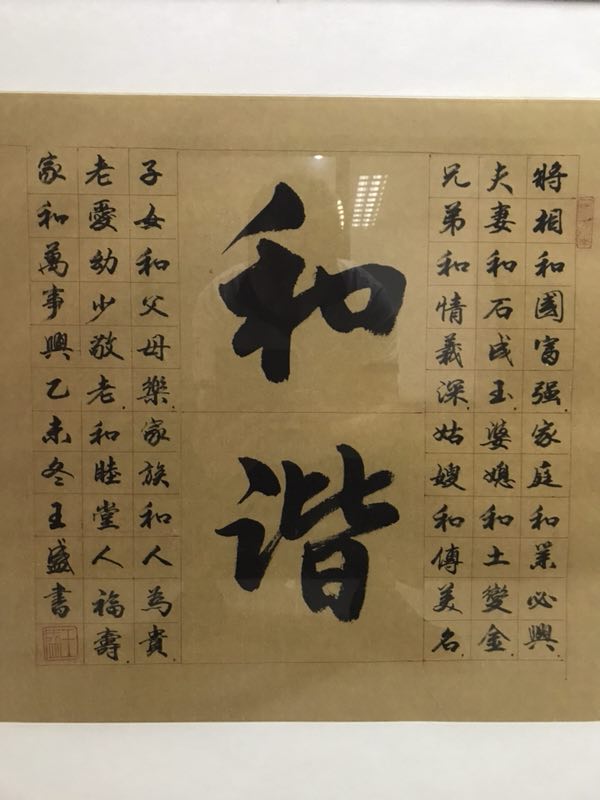 將相和國富强家庭和業必興
夫妻和石成玉婆媳和土變金
兄弟和情義深姑嫂和傳美名
和谐
子女和父母樂家族和人為貴
老愛幼少敬老和睦堂人福壽
家和萬事興乙未冬王盛書